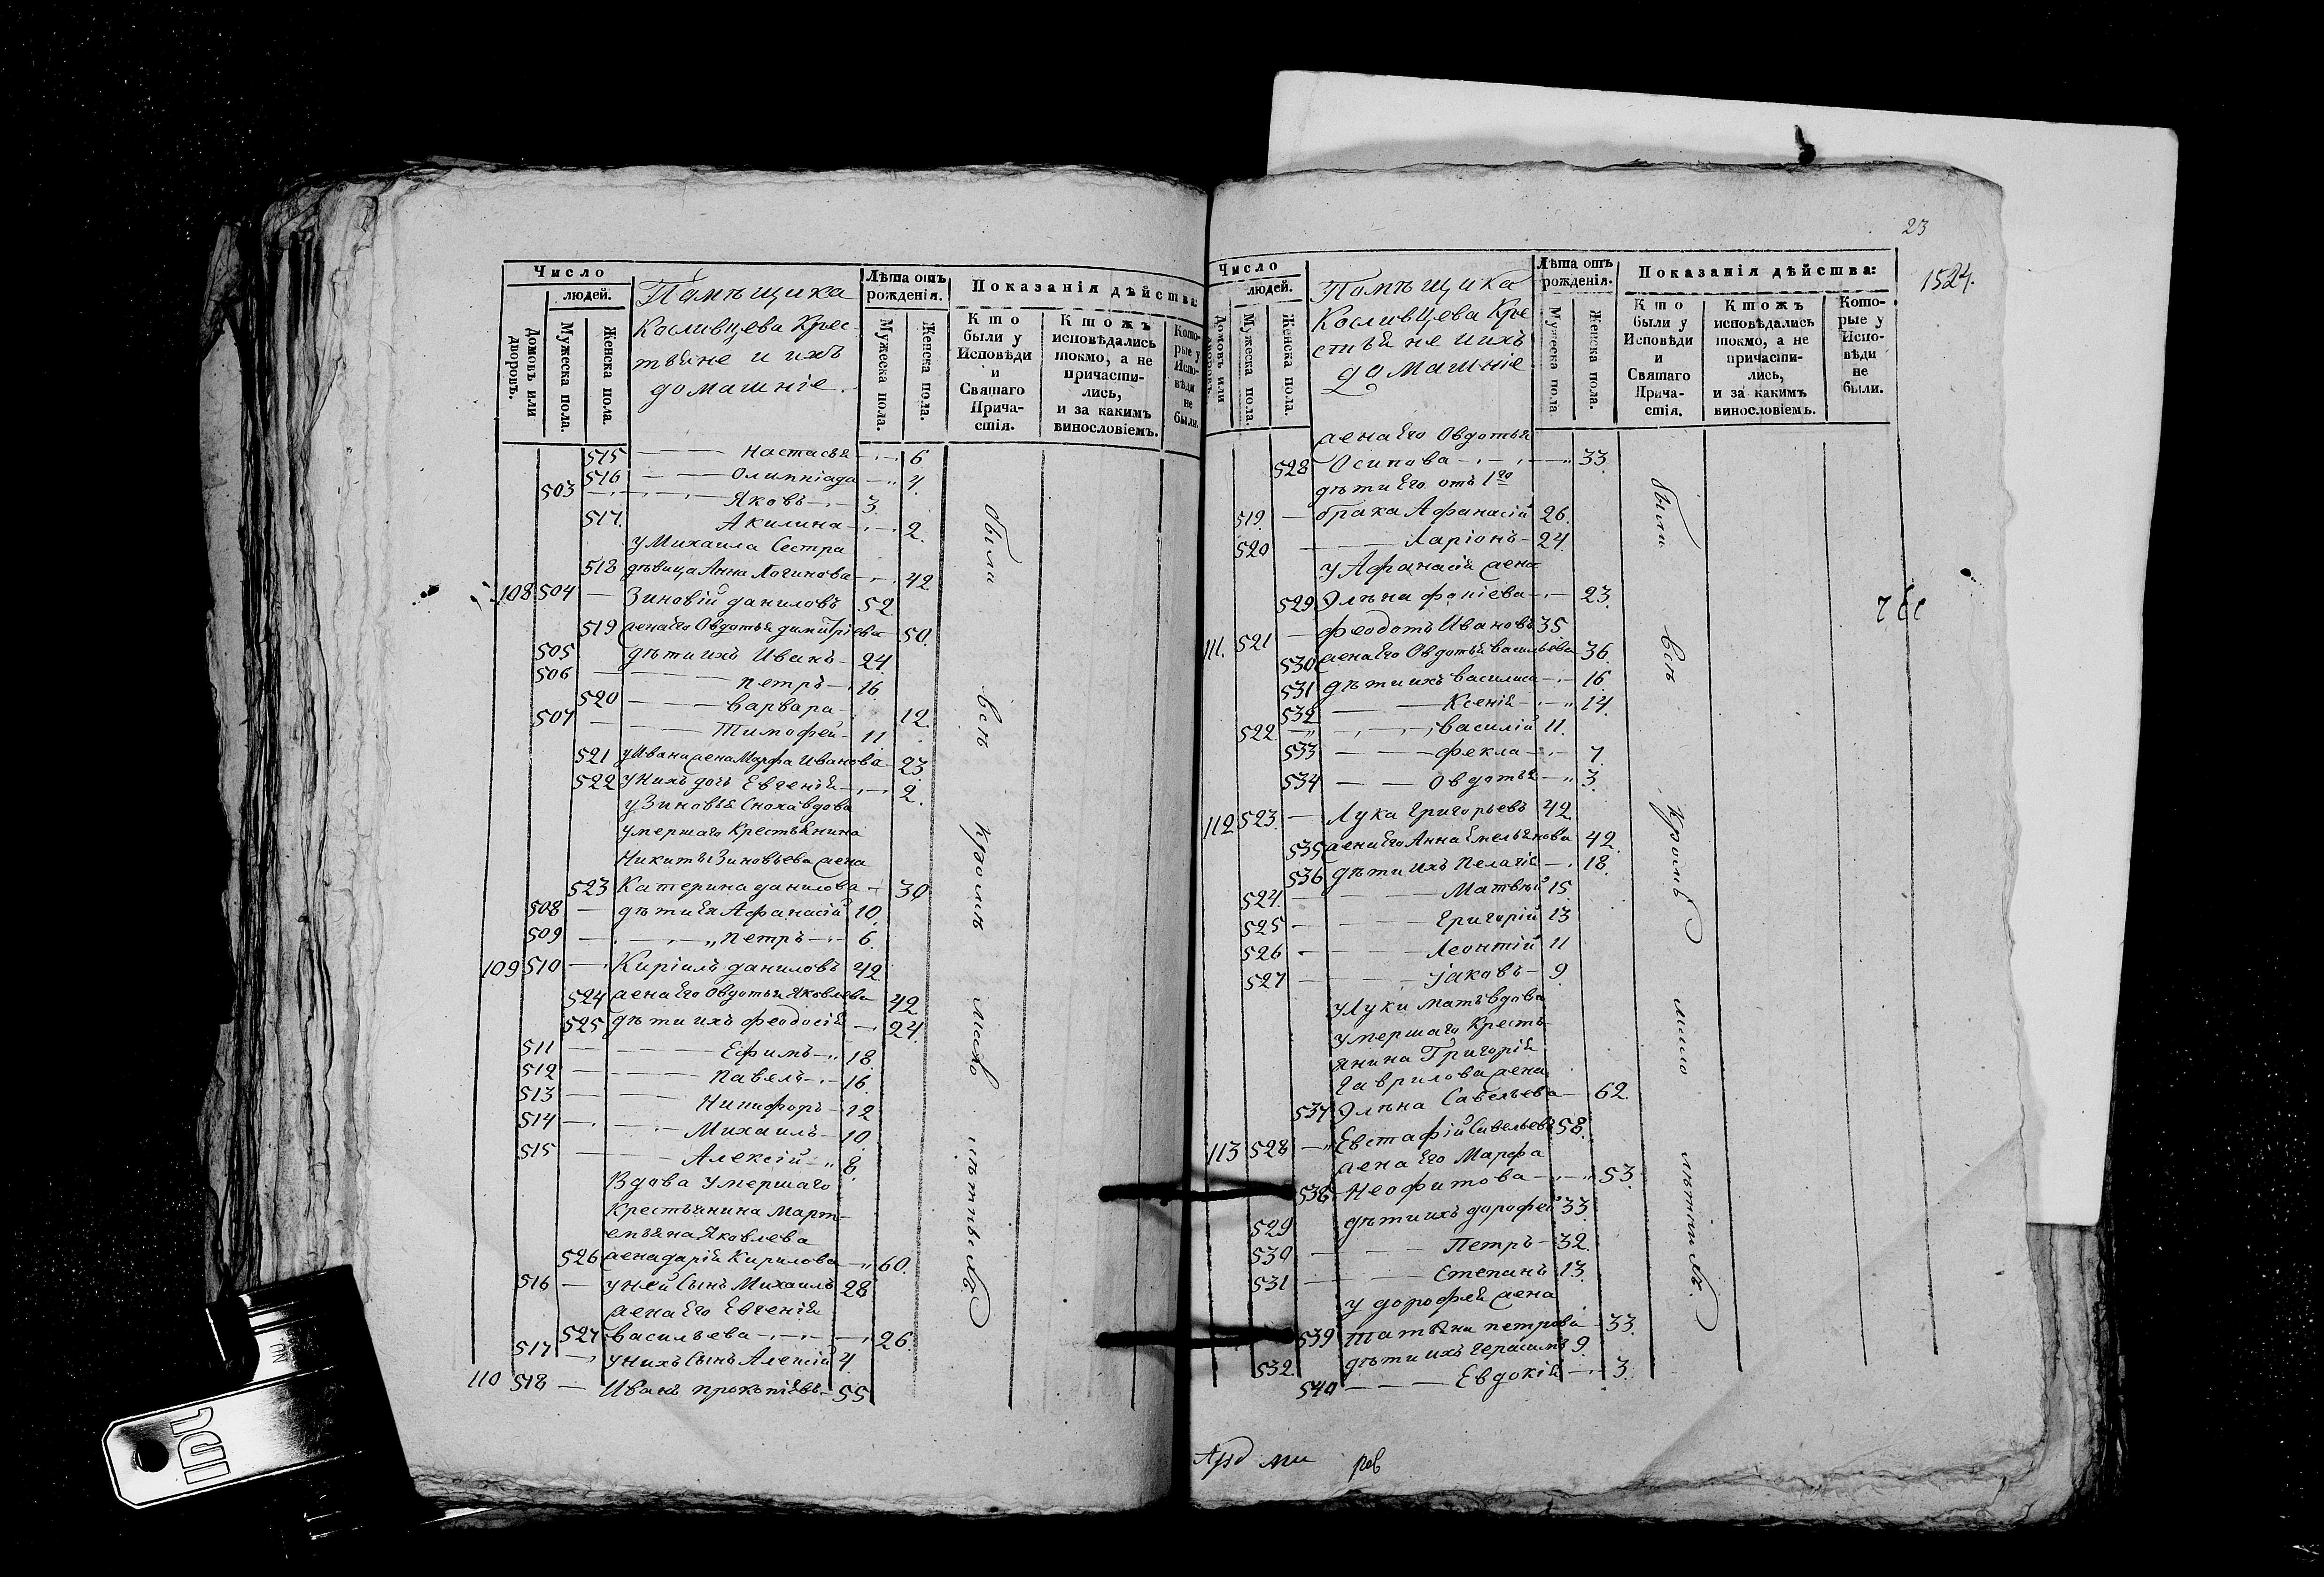 Число
людей.
Домовъ или дворовъ.
Мужеска пола.
Женска пола.
Помѣщика
Косливцева Крес-
тьяне и ихъ
домашніе.
Лѣта отъ рожденія.
Мужеска пола.
Женска пола.
Показанія дѣйства:
Кто были у Исповѣди и Святаго Прича-стія.
Ктожъ исповѣдались токмо, а не причасти-лись, и за какимъ винословіемъ.
Кото-рые у Испо-вѣди не были.
515 Настасья 6
516 Олимпіада 4
503 Яковъ 3
517. Акилина 2.
у Михаила Сестра
518 дѣвица Анна Логинова 42
108 504 Зиновій даниловъ 52
519 жена Его Овдотья димитріева 50.
505 дѣти ихъ Иванъ 24
506 петръ 16
520 варвара 12.
507 Тимофей 11
521 у Ивана жена Марфа Иванова 23
522 у нихъ дочь Евгенія 2.
у Зиновья Сноха вдова
умершаго крестьянина
Никиты Зиновьева жена
523 Катерина данилова 30
508 дѣти Ея Афанасій 10.
509 петръ 6
109 510 Киріилъ даниловъ 42
524 жена Его Овдотья Яковлева 42
525 дѣти ихъ феодосія 24.
511 Ефимъ 18
512 павелъ 16
513 Никифоръ 12
514 Михаилъ 10
515 Алексій 8.
Вдова умершаго
крестьянина Март-
емьяна Яковлева
526 жена дарія Кирилова 60.
516 у ней Сынъ Михаилъ 28
жена Его Евгенія
527 васильева 26.
517 у нихъ Сынъ Алексій 4
110 518 Иванъ прокопіевъ 55
были всѣ кромѣ мало лѣтныхъ
23
1524.
Число
людей.
Домовъ или дворовъ.
Мужеска пола.
Женска пола.
Помѣщика
Косливцева Кре
стьяне и ихъ
домашніе
Лѣта отъ рожденія.
Мужеска пола
Женска пола.
Показанія дѣйства:
Кто были у Исповѣди и Святаго Прича-стія.
Ктожъ исповѣдались токмо, а не причасти-лись, и за какимъ винословіемъ.
Кото-рые у Испо-вѣди не были.
жена Его Овдотья
528 Осипова 33
дѣти Его отъ 1го
519. брака Афанасій 26.
520 Ларіонъ 24
у Афанасія жена
529 Элѣна фопіева 23.
111. 521 феодотъ Ивановъ 35
530 жена Его Овдотья васильева 36.
531 дѣти ихъ василиса 16
532 Ксенія 14.
522. василій 11.
533 фекла 7
534 Овдотья 3.
112 523. Лука Григорьевъ 42
535 жена Его Анна Емельянова 42.
536 дѣти ихъ Пелагія 18.
524. Матвѣй 15
525 Григорій 13
526 Леонтій 11
527 Іаковъ 9
у Луки мать вдова
умершаго кресть-
янина Григорія
Гаврилова жена
537 Элѣна Савельева 62.
113 528 Евстафій Савельевъ 58.
жена Его Марфа
536 Неофитова 53.
529 дѣти ихъ дорофей 33
530 Петръ 32.
531 Степанъ 13.
у дорофея жена
539 татьяна петрова 33.
532. дѣти ихъ герасимъ 9
540 Евдокія 3.
были всѣ кромѣ мало лѣтныхъ.